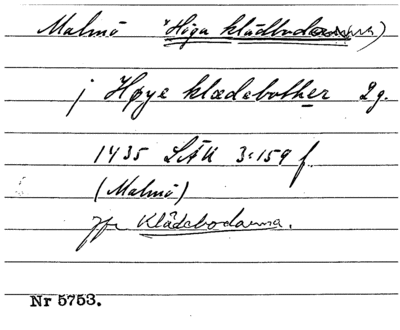 Malmö "Höga klädbodarna)
j Høye klædebother 2 g.
1435 LÄU 3:159 f.
(Malmö)
Jfr Klädebodarna.
Nr 5753.